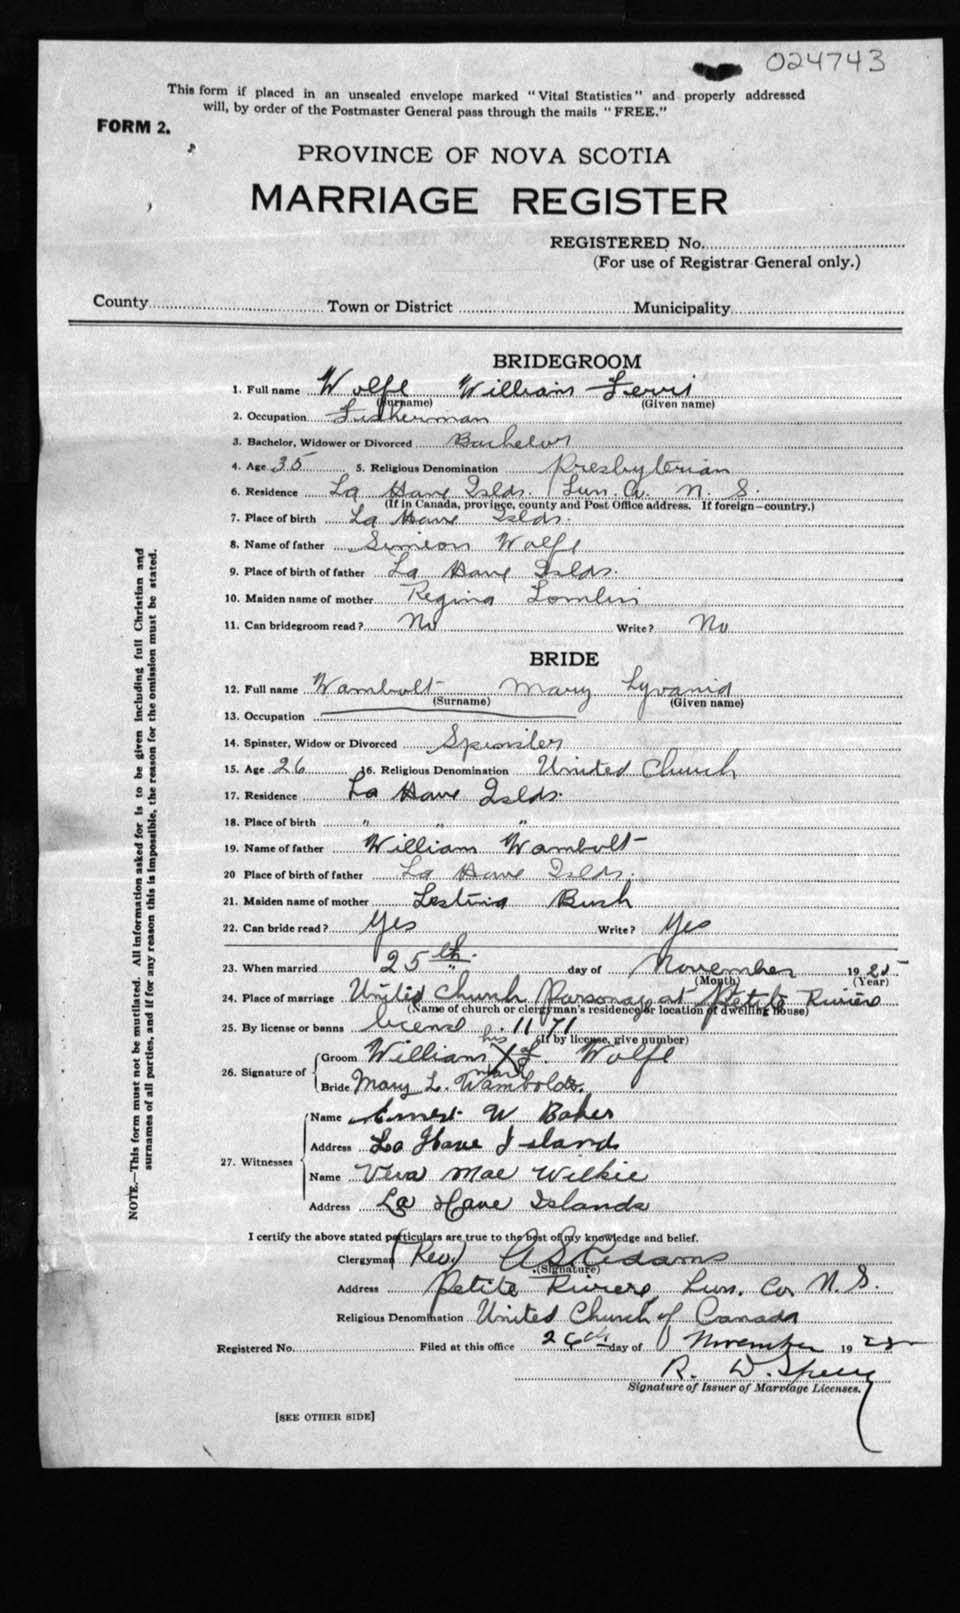 024743
This form if placed in an unsealed envelope marked "Vital Statistics" and properly addressed
will, by order of the Postmaster General pass through the mails "FREE."
FORM 2.
PROVINCE OF NOVA SCOTIA
MARRIAGE REGISTER
REGISTERED No.
(For use of Registrar General only.)
County Town or District Municipality
BRIDEGROOM
1. Full name Wolfe William
(Surname) (Given name)
2. Occupation Fisherman
3. Bachelor, Widower or Divorced Bachelor
4. Age 35 5. Religious Denomination Presbyterian
6. Residence La Have Islds. Lun. Co. N. S.
(If in Canada, province, county and Post Office address. If foreign—country.)
7. Place of birth La Have Islds.
8. Name of father Simeon Wolfe
9. Place of birth of father La Have Islds.
10. Maiden name of mother Regina
11. Can bridegroom read? No Write? No
BRIDE
12. Full name Wambolt Mary
(Surname) (Given name)
13. Occupation
14. Spinster, Widow or Divorced Spinster
15. Age 26 16. Religious Denomination United Church
17. Residence La Have Islds.
18. Place of birth " " "
19. Name of father William Wambolt
20 Place of birth of father La Have Islds.
21. Maiden name of mother Bush
22. Can bride read? Yes Write? Yes
23. When married 25th day of November 1925
(Month) (Year)
24. Place of marriage United Church Parsonage at Petite Riviere
(Name of church or clergyman's residence or location of dwelling house)
25. By license or banns license 1171
(If by license, give number)
26. Signature of Groom William his X mark L. Wolfe
Bride Mary L. Wambolt
27. Witnesses Name Ernest W Baker
Address La Have Islands
Name Vera Mae Wilkie
Address La Have Islands
I certify the above stated particulars are true to the best of my knowledge and belief.
Clergyman (Rev.) A S Adams
(Signature)
Address Petite Riviere, Lun. Co. N. S.
Religious Denomination United Church of Canada
Registered No. Filed at this office 26th day of November 19
R. D.
Signature of Issuer of Marriage Licenses.
[SEE OTHER SIDE]
NOTE.—This form must not be mutilated. All information asked for is to be given including full Christian and
surnames of all parties, and if for any reason this is impossible, the reason for the omission must be stated.